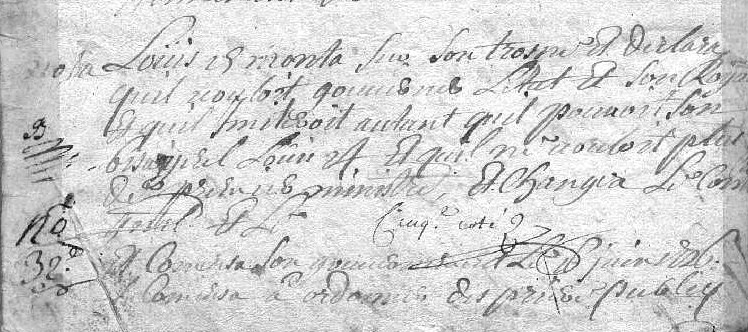 nota Loüis 15 monta sur son trosne et declara
quil vouloit gouverner Letat et son Roy
et quil imiteroit autant quil pouvoit son
bisaiyeul Louis 14 et quil ne vouloit plus
de premier ministre et changea Le Con
et Le
Cinq.e coté
et Comensa son gouvernement Le juin 1726
et Comensa a ordonner des prieres Publiq